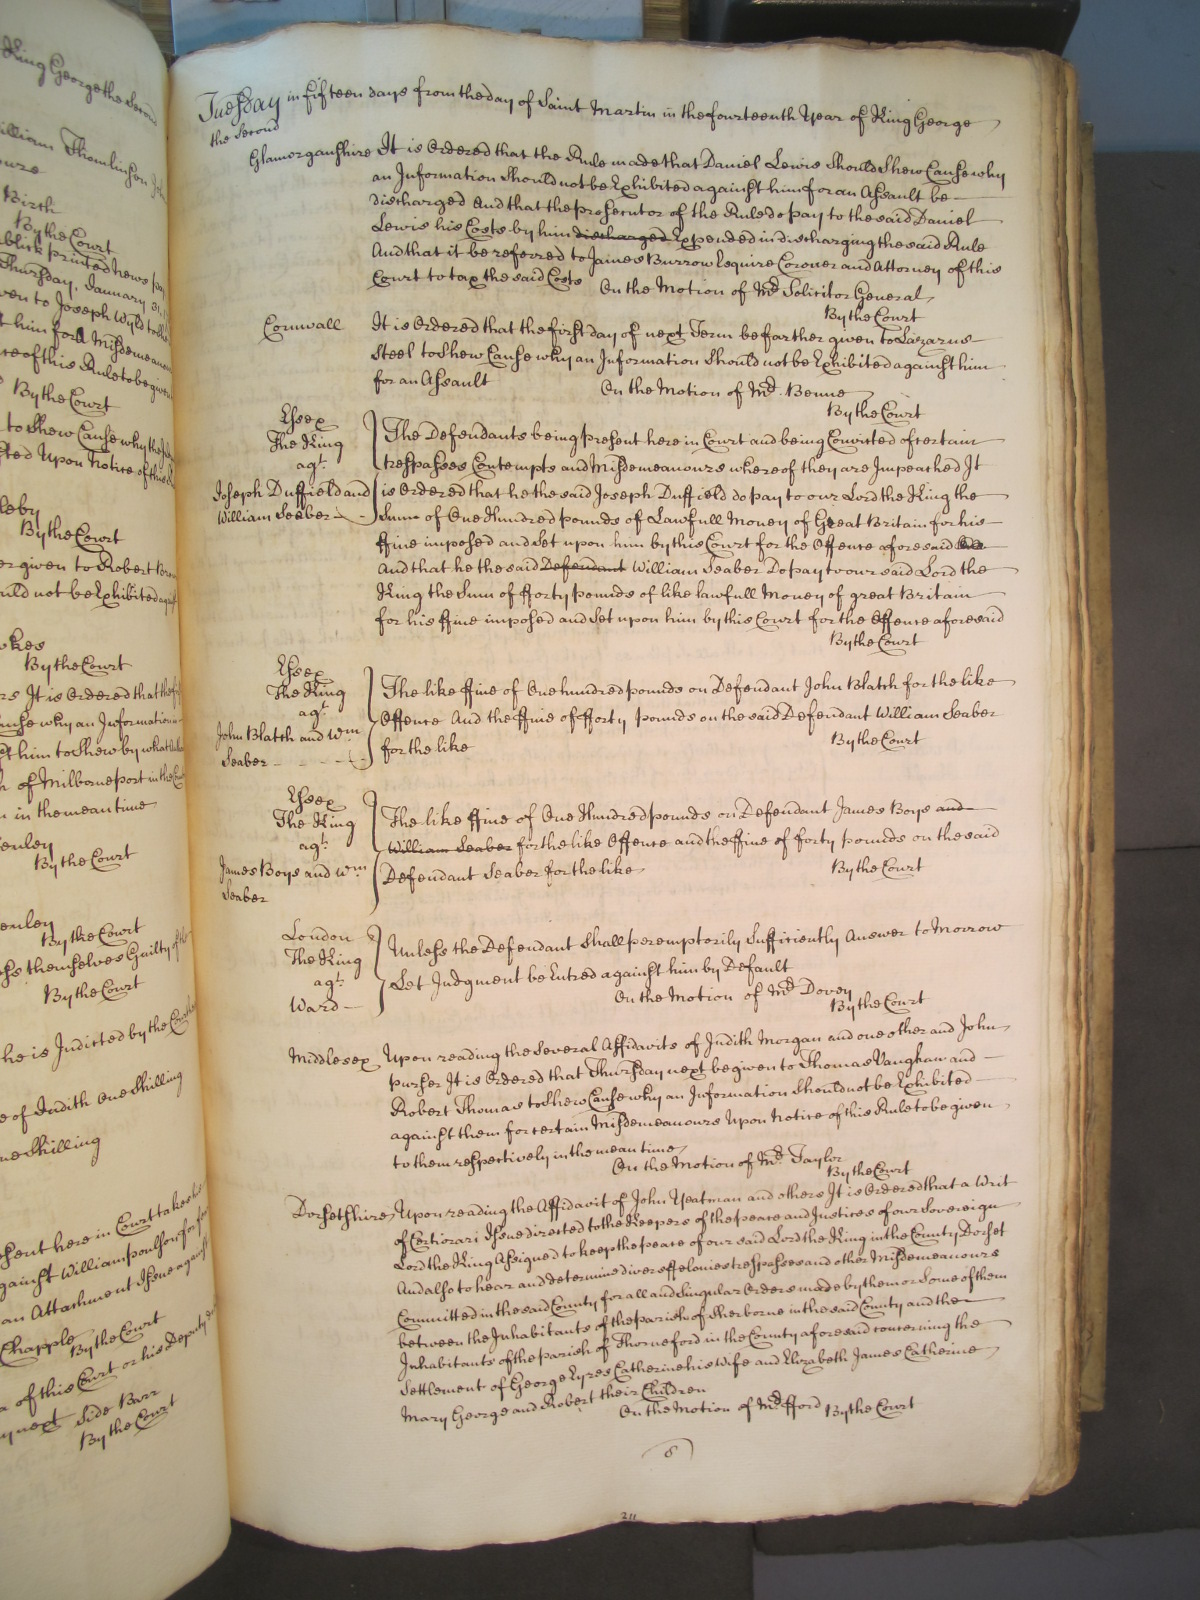 King George the Second
William Thomlinson
Birth
By the Court
publick printed news
Thursday, January 31
given to Joseph Wyld to shew
him for a Misdemeanour
of this Rule to be given
By the Court
to Shew Cause why the
Upon Notice of this
By the Court
given to Robert
should not be Exhibited
By the Court
It is Ordered that the
Cause why an Information
him to Shew by what
of Milborneport in the
in the mean time
By the Court
By the Court
themselves Guilty of
By the Court
he is Indicted by the
of Judith One Shilling
One Shilling
present here in Court takes his
against William poulson for
an Attachment Issue against
Chapple By the Court
of this Court or his Deputy
next Side Barr
By the Court
Tuesday in fifteen days from the day of Saint Martin in the fourteenth Year of King George
the Second
Glamorganshire It is Ordered that the Rule made that Daniel Lewis Should Shew Cause why
an Information Should not be Exhibited against him for an Assault be
discharged And that the prosecutor of the Rule do pay to the said Daniel
Lewis his Costs by him discharged Expended in discharging the said Rule
And that it be referred to James Burrow Esquire Coroner and Attorney of this
Court to tax the said Costs On the Motion of Mr. Solicitor General
By the Court
Cornwall It is Ordered that the first day of next Term be farther given to Lazarus
Steel to Shew Cause why an Information Should not be Exhibited against him
for an Assault On the Motion of Mr. Benne
By the Court
Essex
The King
agt.
Joseph Duffield and
William Seaber
The Defendants being present here in Court and being Convicted of certain
trespasses Contempts and Misdemeanours whereof they are Impeached It
is Ordered that he the said Joseph Duffield do pay to our Lord the King the
Sum of One Hundred pounds of Lawfull Money of Great Britain for his
ffine imposed and Set upon him by this Court for the Offence aforesaid
And that he the said Defendant William Seaber Do pay to our said Lord the
King the Sum of fforty pounds of like lawfull Money of great Britain
for his ffine imposed and Set upon him by this Court for the Offence aforesaid
By the Court
Essex
The King
agt.
John Blatch and Wm
Seaber
The like ffine of One hundred pounds on Defendant John Blatch for the like
Offence And the ffine of fforty pounds on the said Defendant William Seaber
for the like By the Court
Essex
The King
agt.
James Boys and Wm
Seaber
The like ffine of One Hundred pounds on Defendant James Boys and
William Seaber for the like Offence and the ffine of forty pounds on the said
Defendant Seaber for the like By the Court
London
The King
agt.
Ward
Unless the Defendant Shall peremptorily Sufficiently Answer to Morrow
Let Judgment be Entred against him by Default
On the Motion of Mr. Dovey
By the Court
Middlesex Upon reading the Several Affidavits of Judith Morgan and one other and John
purser It is Ordered that Thursday next be given to Thomas Vaughan and
Robert Thomas to Shew Cause why an Information Should not be Exhibited
against them for certain Misdemeanours Upon Notice of this Rule to be given
to them respectively in the mean time
On the Motion of Mr. Taylor
By the Court
Dorsetshire Upon reading the Affidavit of John Yeatman and others It is Ordered that a Writ
of Certiorari Issue directed to the Keepers of the peace and Justices of our Sovereign
Lord the King Assigned to keep the peace of our said Lord the King in the County Dorset
And also to hear and determine divers ffelonies trespasses and other Misdemeanours
Committed in the said County for all and Singular Orders made by them or Some of them
between the Inhabitants of the parish of Sherborne in the said County and the
Inhabitants of the parish of Thorneford in the County aforesaid concerning the
Settlement of George Eyres Catherine his Wife and Elizabeth James Catherine
Mary George and Robert their Children
On the Motion of Mr. fford By the Court
211